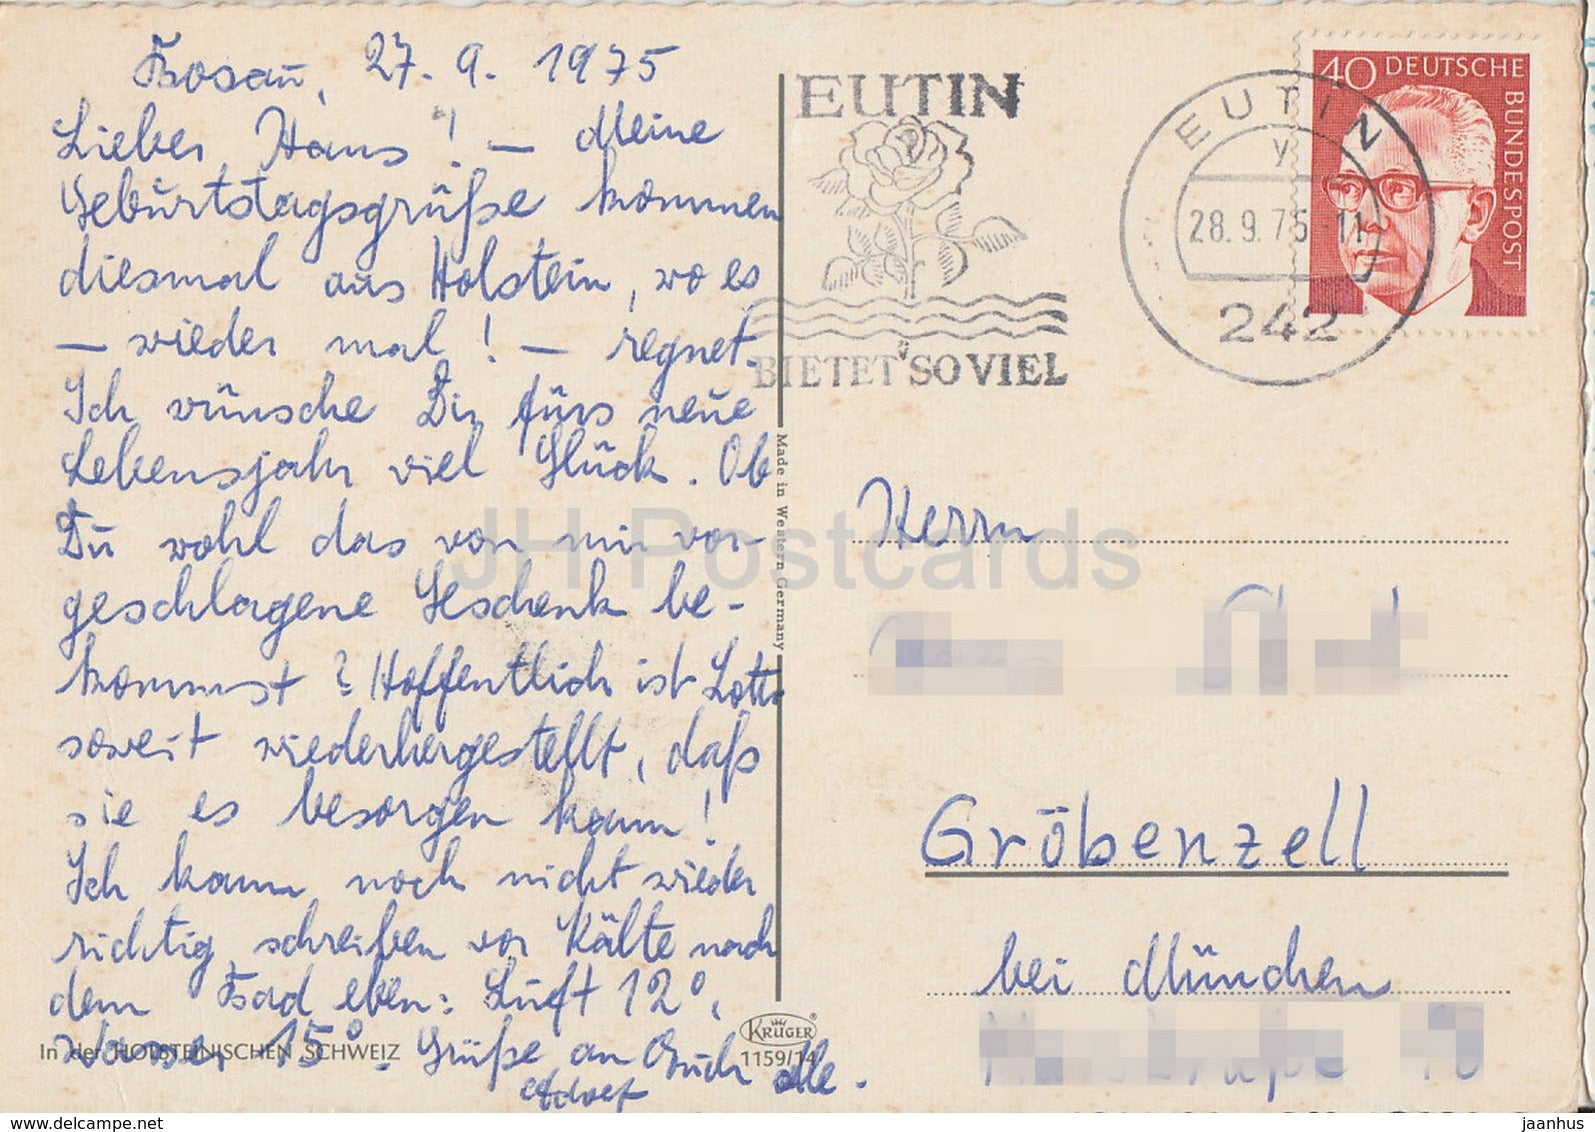 Bosau, 27. 9. 1975
Lieber Hans! – Meine
Geburtstagsgrüße kommen
diesmal aus Holstein, wo es
– wieder mal! – regnet.
Ich wünsche Dir fürs neue
Lebensjahr viel Glück. Ob
Du wohl das von mir vor-
geschlagene Geschenk be-
kommst? Hoffentlich ist Lotte
soweit wiederhergestellt, daß
sie es besorgen kann!
Ich kann noch nicht wieder
richtig schreiben vor Kälte nach
dem Bad eben: Luft 12°,
Wasser 15°. Grüße an Euch alle.
In der HOLSTEINISCHEN SCHWEIZ
EUTIN
BIETET SO VIEL
EUTIN
y
28.9.75-11
242
40 DEUTSCHE
BUNDESPOST
Made in Western Germany
KRÜGER
1159/14
Herrn
Gröbenzell
bei München
JH Postcards
www.delcampe.net
jaanhus